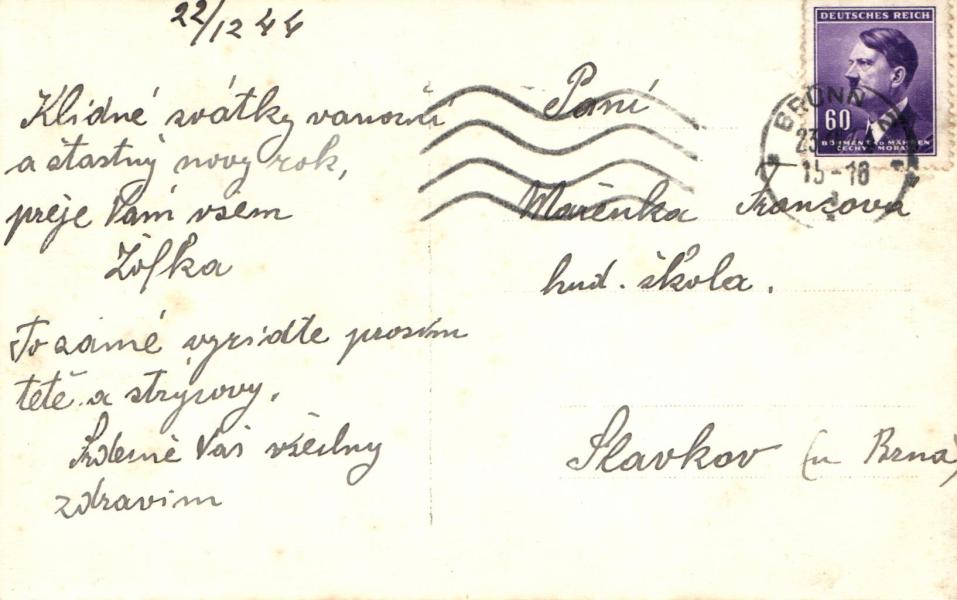 22/12 44
Klidné svátky vanoční
a štastný novy rok,
preje Vám vsem
Žofka
To samé vyridte prosím
tetě a strýcovy.
Srdečně Vás všechny
zdravim
Paní
Mařenka Francova
hud. škola.
Slavkov (u Brna)
DEUTSCHES REICH
60
BÖHMEN UND MÄHREN
ČECHY A MORAVA
BRÜNN
23
15-16